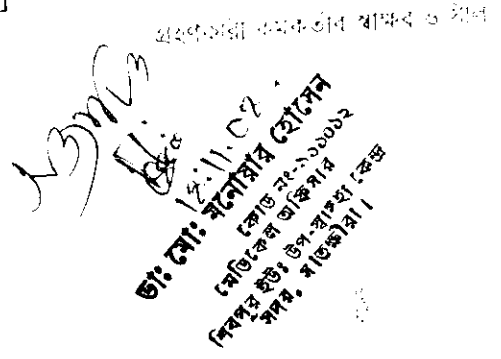 গ্রহণকারী কর্মকর্তার স্বাক্ষর ও সীল
ডাঃ মোঃ মনোয়ার হোসেন
কোড নং-১১১০১২
মেডিকেল অফিসার
শিবপুর ইউঃ উপ-স্বাস্থ্য কেন্দ্র
সদর, সাতক্ষীরা।